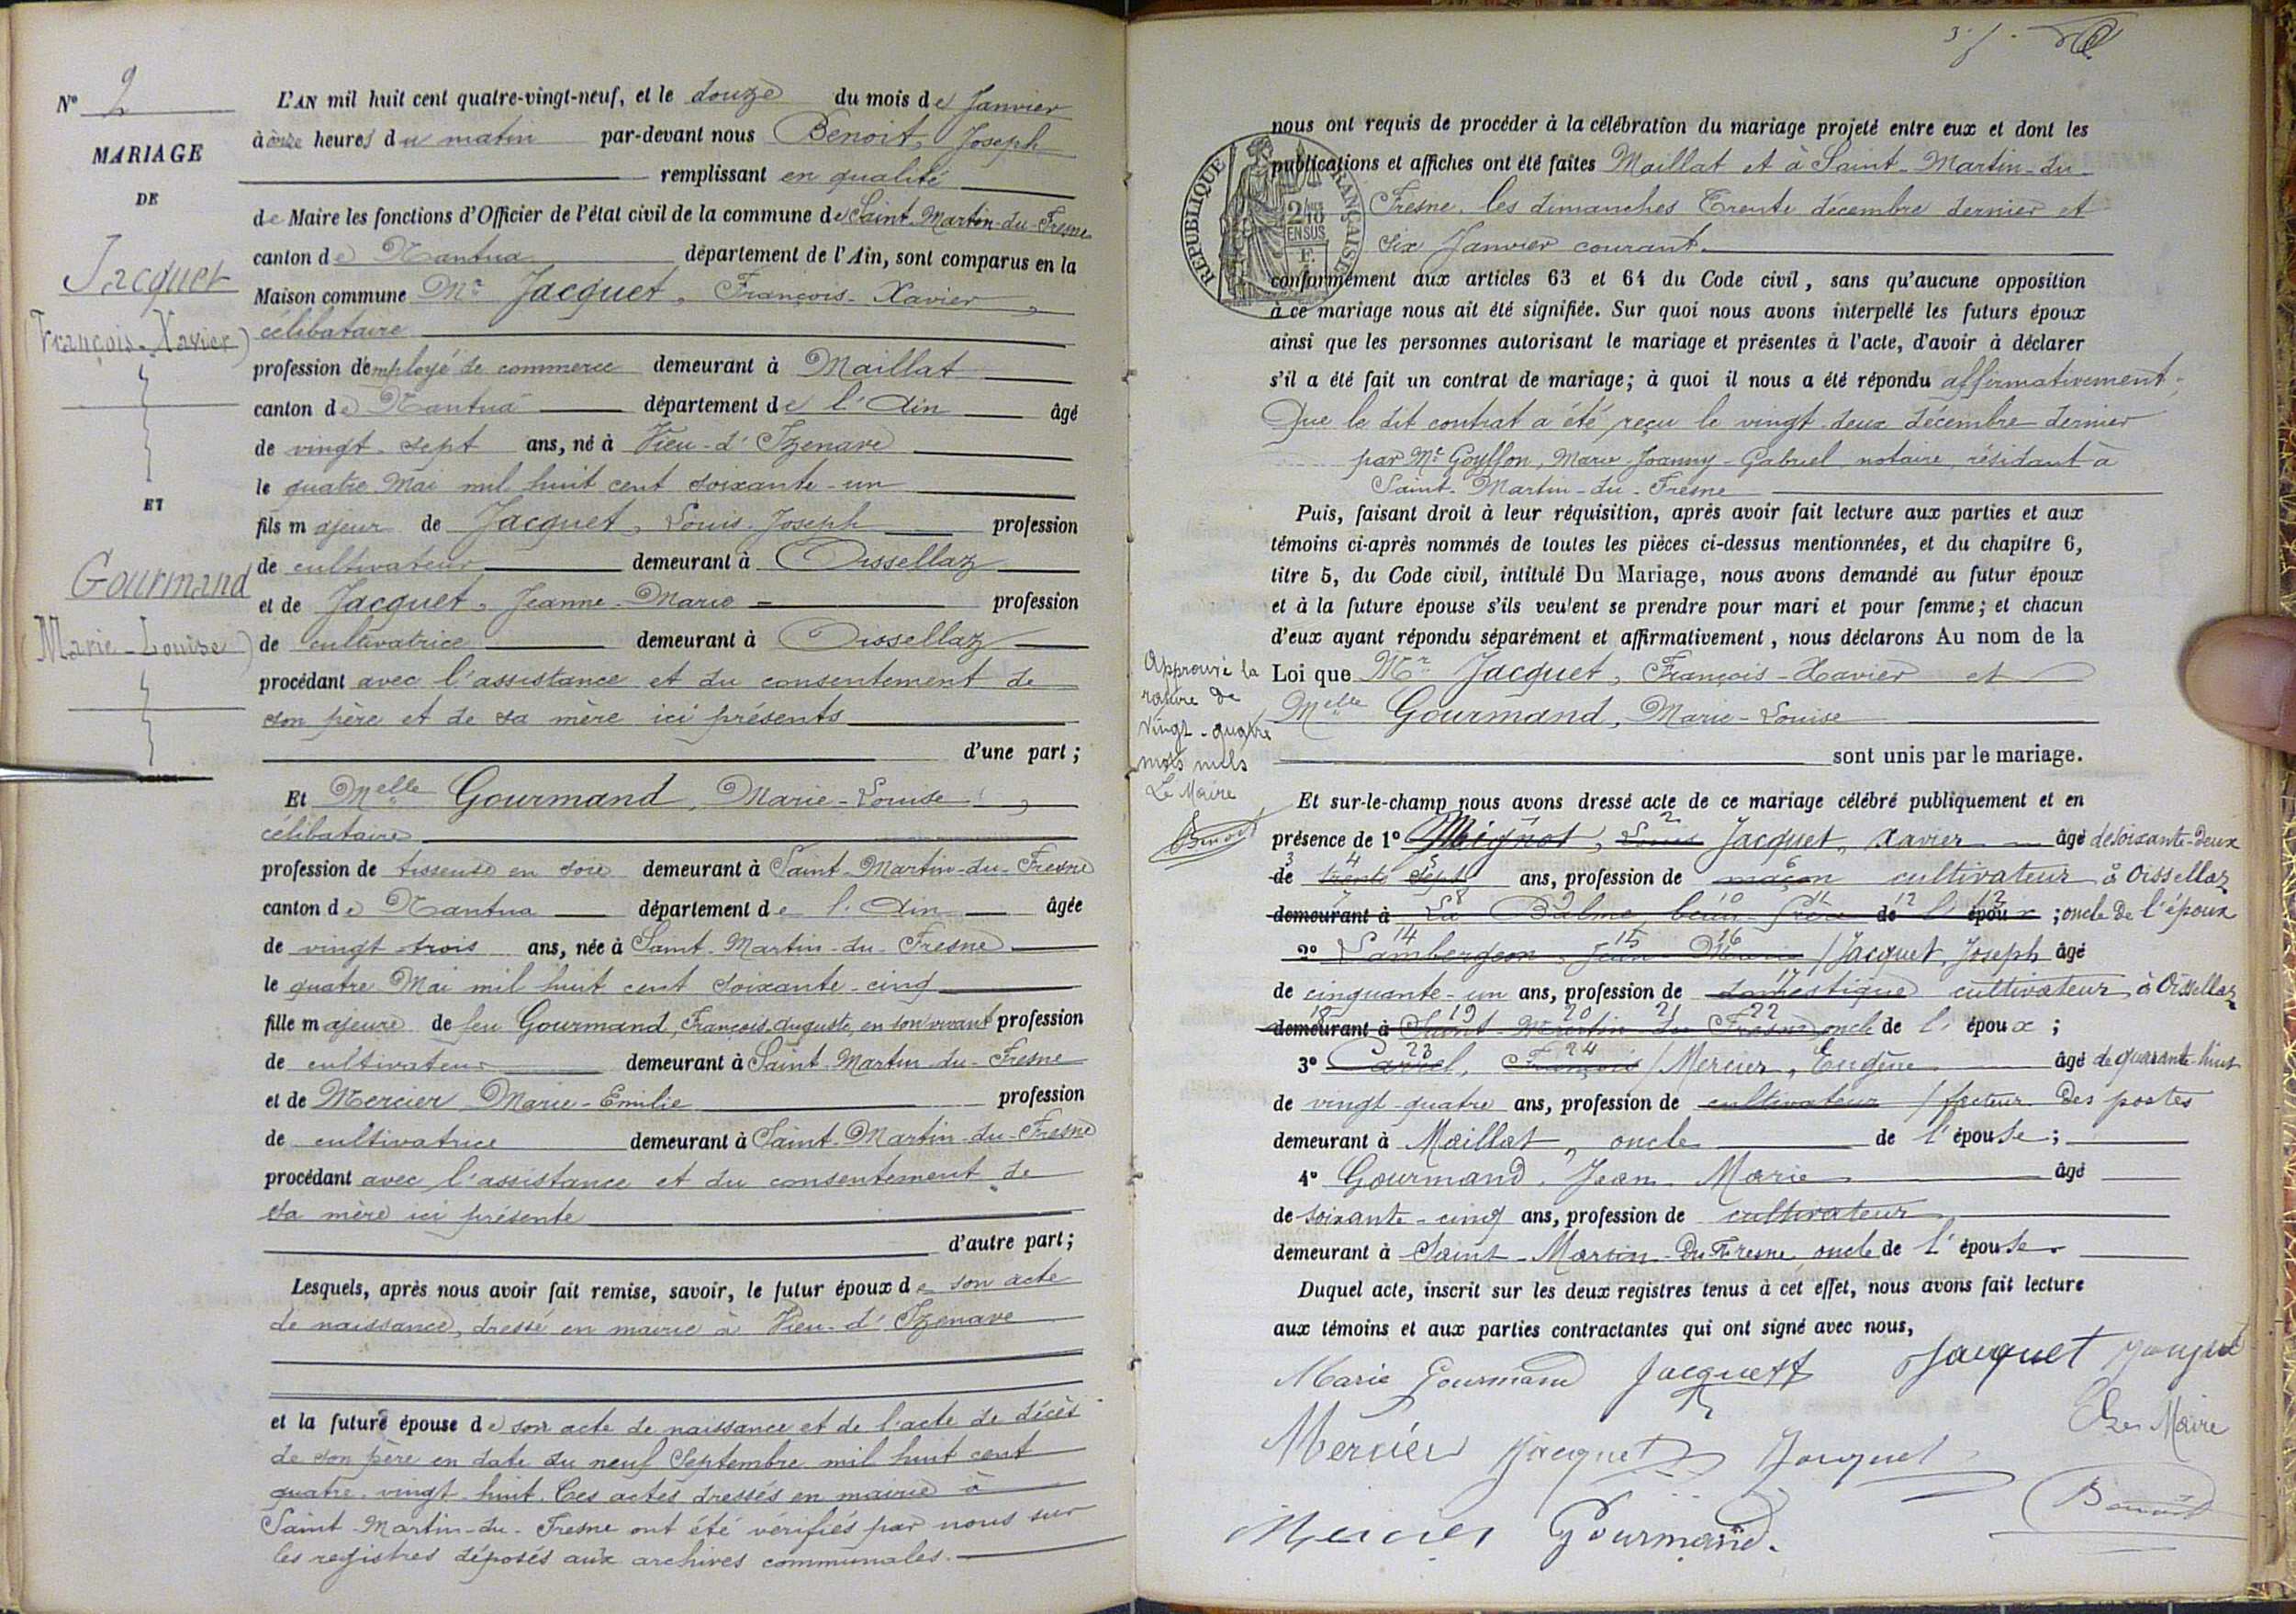 N° 2
MARIAGE
DE
Jacquet
(François-Xavier)
ET
Gourmand
(Marie-Louise)
L'AN mil huit cent quatre-vingt-neuf, et le douze du mois de Janvier
à onze heures du matin par-devant nous Benoit, Joseph
remplissant en qualité
de Maire les fonctions d'Officier de l'état civil de la commune de Saint-Martin-du-Fresne
canton de Nantua département de l'Ain, sont comparus en la
Maison commune Mr Jacquet, François-Xavier,
célibataire
profession d'employé de commerce demeurant à Maillat
canton de Nantua département de l'Ain âgé
de vingt-sept ans, né à Vieu-d'Izenave
le quatre Mai mil huit cent soixante-un
fils majeur de Jacquet, Louis-Joseph profession
de cultivateur demeurant à Oissellaz
et de Jacquet, Jeanne-Marie profession
de cultivatrice demeurant à Oissellaz
procédant avec l'assistance et du consentement de
son père et de sa mère ici présents
d'une part;
Et Melle Gourmand, Marie-Louise,
célibataire
profession de tisseuse en soie demeurant à Saint-Martin-du-Fresne
canton de Nantua département de l'Ain âgée
de vingt-trois ans, née à Saint-Martin-du-Fresne
le quatre Mai mil huit cent soixante-cinq
fille majeure de feu Gourmand, François Auguste, en son vivant profession
de cultivateur demeurant à Saint-Martin-du-Fresne
et de Mercier Marie-Emilie profession
de cultivatrice demeurant à Saint-Martin-du-Fresne
procédant avec l'assistance et du consentement de
sa mère ici présente
d'autre part;
Lesquels, après nous avoir fait remise, savoir, le futur époux de son acte
de naissance, dressé en mairie à Vieu-d'Izenave
et la future épouse de son acte de naissance et de l'acte de décès
de son père en date du neuf Septembre mil huit cent
quatre-vingt-huit. Ces actes dressés en mairie à
Saint-Martin-du-Fresne ont été vérifiés par nous sur
les registres déposés aux archives communales.
nous ont requis de procéder à la célébration du mariage projeté entre eux et dont les
publications et affiches ont été faites Maillat et à Saint-Martin-du-
Fresne, les dimanches Trente décembre dernier et
six Janvier courant.
RÉPUBLIQUE FRANÇAISE
2/10 EN SUS
conformément aux articles 63 et 64 du Code civil, sans qu'aucune opposition
à ce mariage nous ait été signifiée. Sur quoi nous avons interpellé les futurs époux
ainsi que les personnes autorisant le mariage et présentes à l'acte, d'avoir à déclarer
s'il a été fait un contrat de mariage; à quoi il nous a été répondu affirmativement;
Que le dit contrat a été reçu le vingt-deux décembre dernier
par Me Goyffon, Marie-Joanny-Gabriel, notaire, résidant à
Saint-Martin-du-Fresne
Puis, faisant droit à leur réquisition, après avoir fait lecture aux parties et aux
témoins ci-après nommés de toutes les pièces ci-dessus mentionnées, et du chapitre 6,
titre 5, du Code civil, intitulé Du Mariage, nous avons demandé au futur époux
et à la future épouse s'ils veulent se prendre pour mari et pour femme; et chacun
d'eux ayant répondu séparément et affirmativement, nous déclarons Au nom de la
Loi que Mr Jacquet, François-Xavier et
Melle Gourmand, Marie-Louise
sont unis par le mariage.
Approuvé la
rature de
vingt-quatre
mots nuls
Le Maire
Benoit
Et sur-le-champ nous avons dressé acte de ce mariage célébré publiquement et en
présence de 1° Mignot, Louis Jacquet, Xavier âgé de soixante-deux
de trente sept ans, profession de maçon cultivateur à Oissellaz
demeurant à La Balme, beau-frère de l'époux; oncle de l'époux
2° Lambergeon, Jean Marie / Jacquet, Joseph âgé
de cinquante-un ans, profession de domestique cultivateur à Oissellaz
demeurant à Saint-Martin du Fresne, oncle de l'époux;
3° Carrel, François / Mercier, Eugène âgé de quarante-huit
de vingt-quatre ans, profession de cultivateur / facteur des postes
demeurant à Maillat, oncle de l'épouse;
4° Gourmand, Jean-Marie âgé
de soixante-cinq ans, profession de cultivateur
demeurant à Saint-Martin-Du-Fresne, oncle de l'épouse.
Duquel acte, inscrit sur les deux registres tenus à cet effet, nous avons fait lecture
aux témoins et aux parties contractantes qui ont signé avec nous,
Marie Gourmand Jacquet Jacquet
Mercier Jacquet Jacquet Le Maire
Mercier Gourmand. Benoit